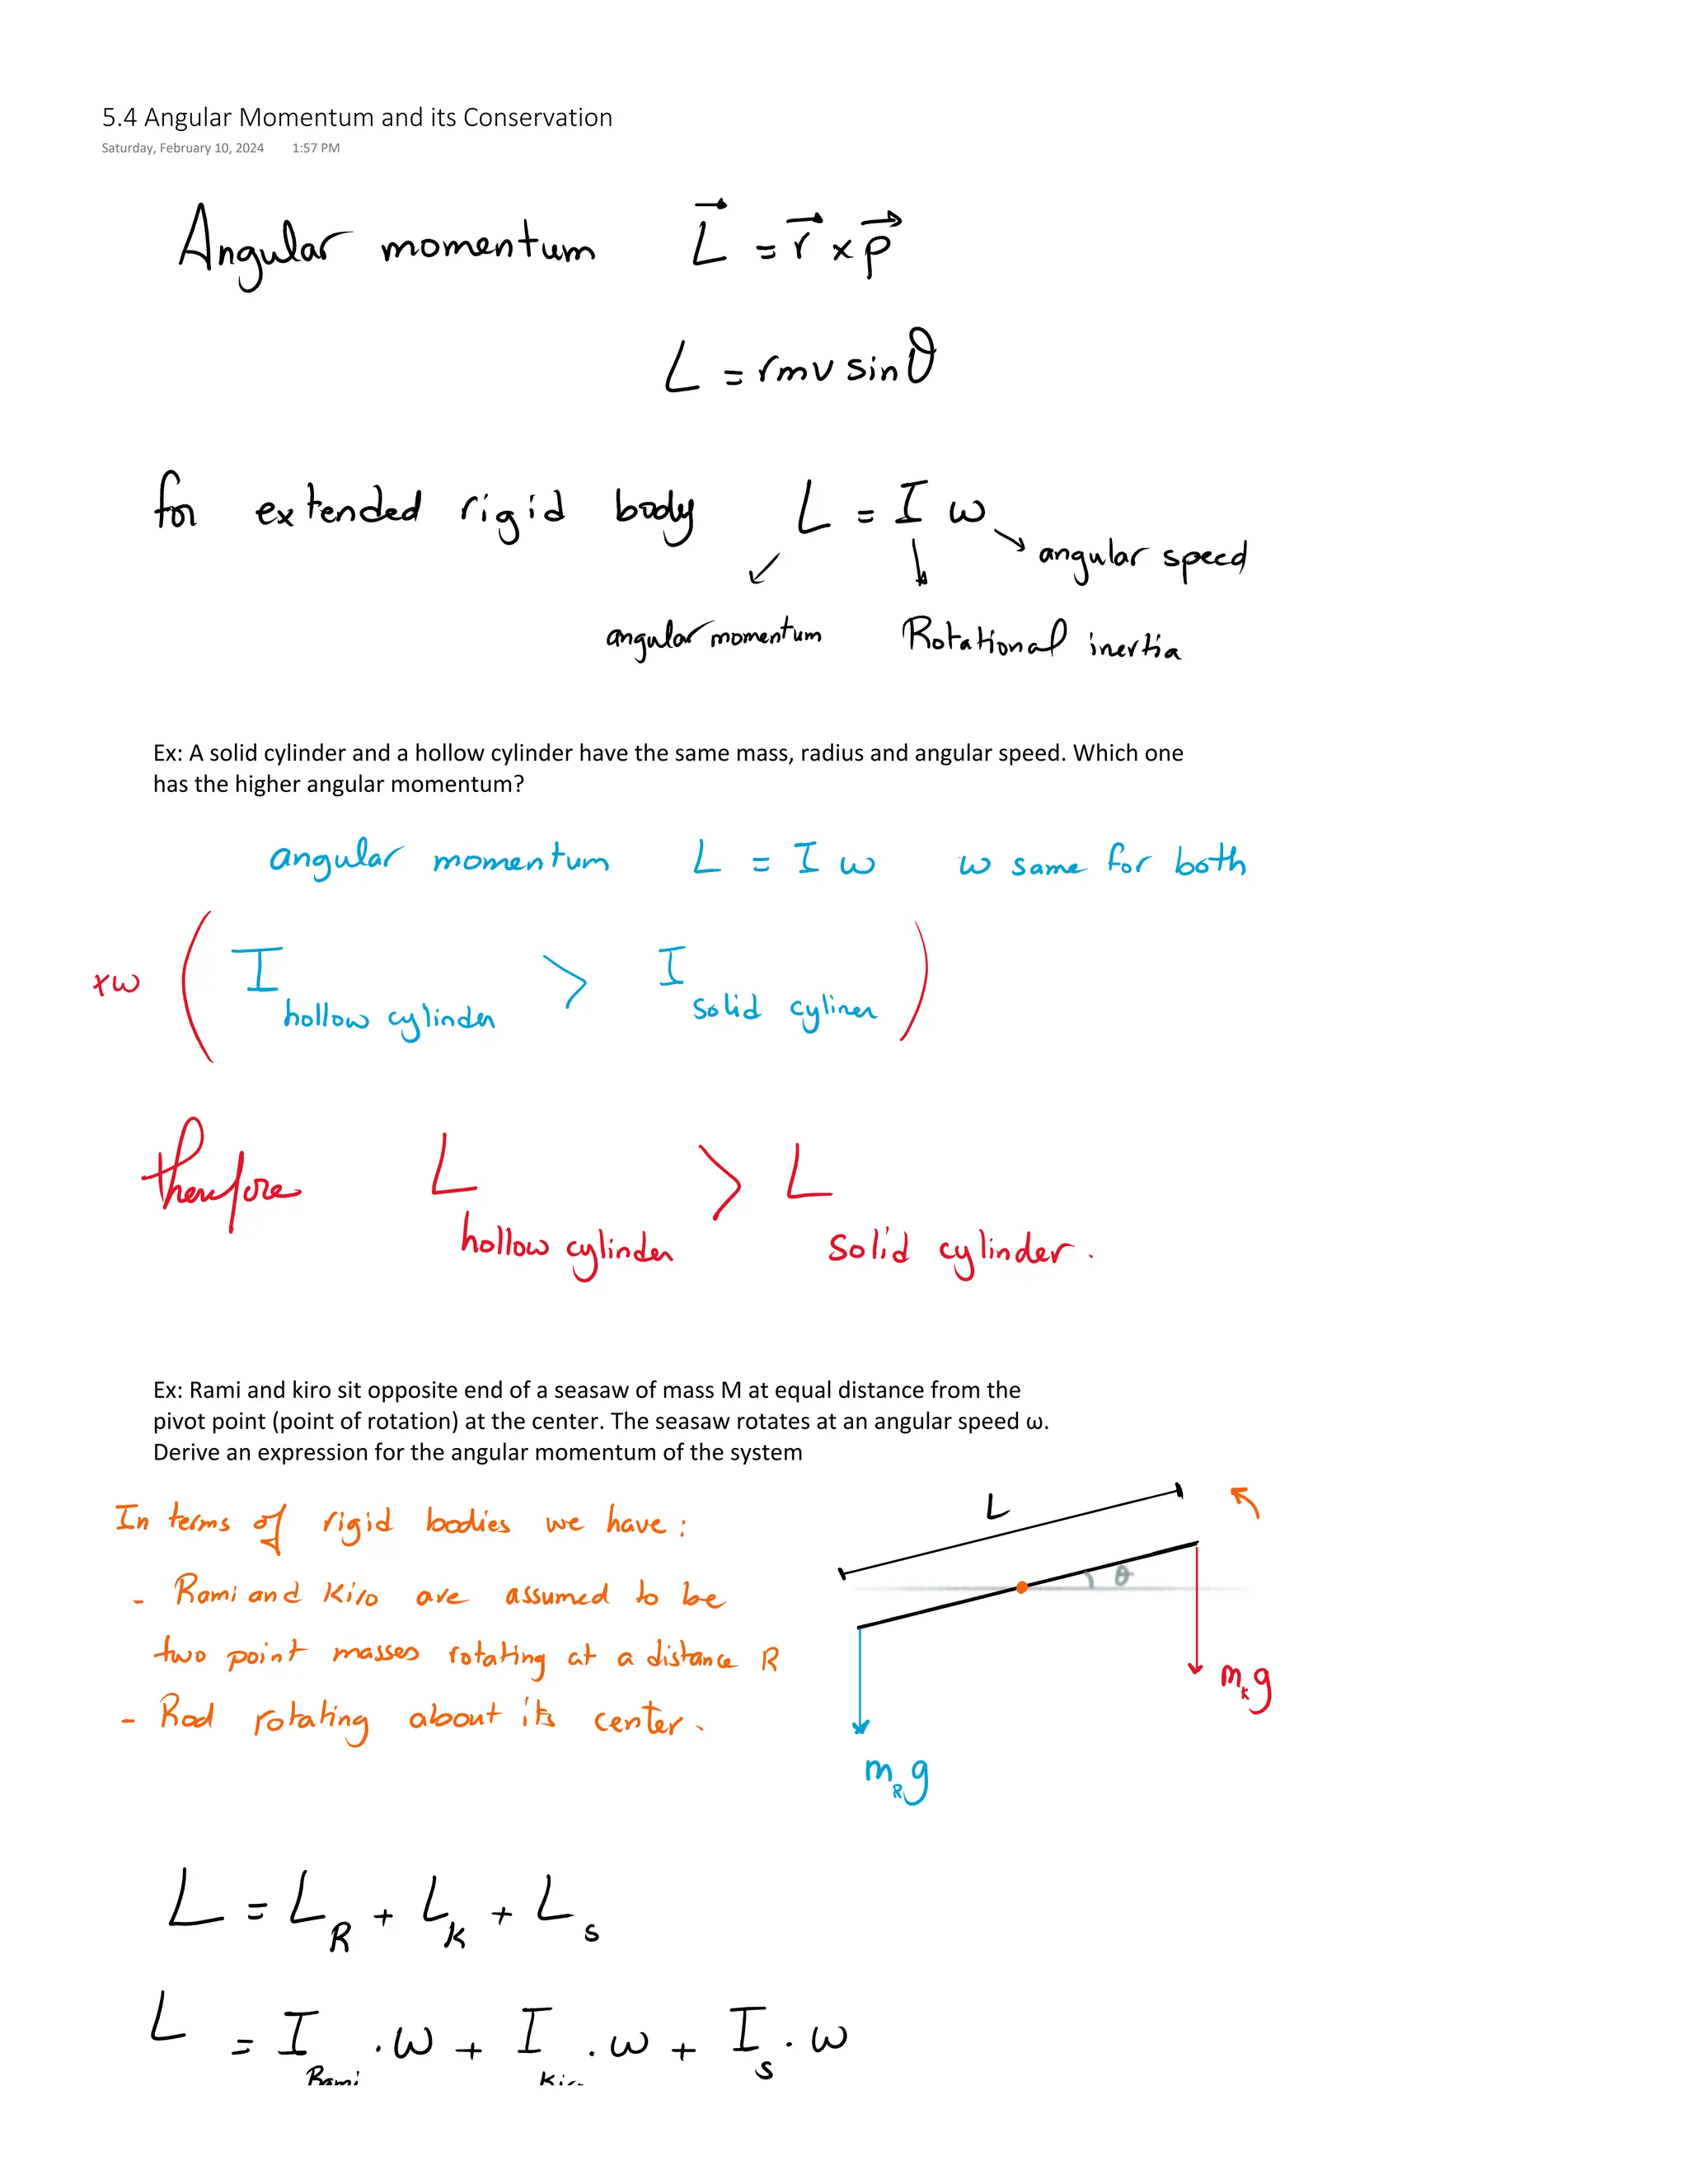 5.4 Angular Momentum and its Conservation
Saturday, February 10, 2024 1:57 PM
Angular momentum L⃗ = r⃗ × p⃗
L = rmv sinθ
for extended rigid body L = I ω
angular speed
angular momentum Rotational inertia
Ex: A solid cylinder and a hollow cylinder have the same mass, radius and angular speed. Which one
has the higher angular momentum?
angular momentum L = I ω ω same for both
×ω ( I hollow cylinder > I solid cyliner )
therefore L hollow cylinder > L solid cylinder.
Ex: Rami and kiro sit opposite end of a seasaw of mass M at equal distance from the
pivot point (point of rotation) at the center. The seasaw rotates at an angular speed ω.
Derive an expression for the angular momentum of the system
In terms of rigid bodies we have:
- Rami and Kiro are assumed to be
two point masses rotating at a distance R
- Rod rotating about its center.
L
θ
m_K g
m_R g
L = L_R + L_K + L_s
L = I_Rami · ω + I_Kiro · ω + I_s · ω